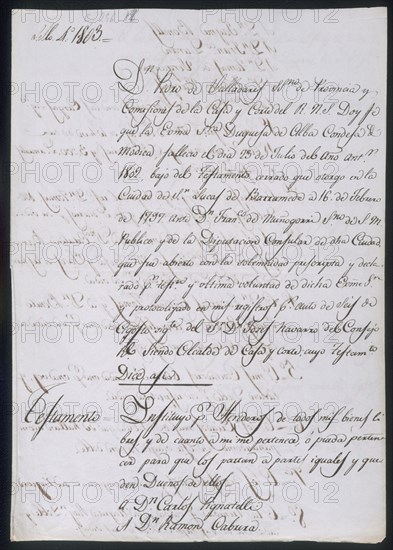 Año de 1803=
Dn. Pedro de Valladares Essno. de Provincia y
Comisiones de la Casa y Corte del R. N. S. Doy fe
que la Exma. Sra. Duquesa de Alba Condesa de
Modica falleció el dia 23 de Julio del Año Antr.
1802. bajo del Testamento cerrado que otorgo en la
Ciudad de Sn. Lucar de Barrameda a 16 de Febrero
de 1797. Ante Dn. Franco. de Muñogorri Essno. de S. M.
Publico y de la Diputacion Consular de dha Ciudad
que fue abierto con la solemnidad prescripta y decla
rado pr. testamto. y ultima voluntad de dicha Exma. Sra.
y protocolizado en mis registros pr. Auto de Seis de
Agosto sigte. del Sr. Dn. Josef Navarro del Consejo
siendo Alcalde de Casa y corte cuyo Testamto.
Dice asi
Testamento = Instituyo pr. Herederos de todos mis bienes li
bres y de cuanto a mi me pertenece, o pueda perten
cer para que los partan a partes iguales y que
den Dueños de ellos
A Dn. Carlos Pignatelli
A Dn. Ramon Cabura